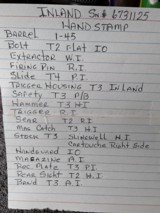 INLAND SN# 6731125
HANDSTAMP
Barrel 1-45
Bolt T2 FLAT IO
Extractor W.I.
Firing Pin R.I.
Slide T4 P.I.
Trigger Housing T3 INLAND
Safety T3 P/B
Hammer T3 H.I
Trigger R.I
Sear T2 R.I
Mag Catch T3 H.I
Stock T3 Slingwell H.I
Cartouche Right Side
Handguard IO
Magazine A.I
Rec Plate T3 P.I
Rear Sight T2 H.I
Band T3 A.I